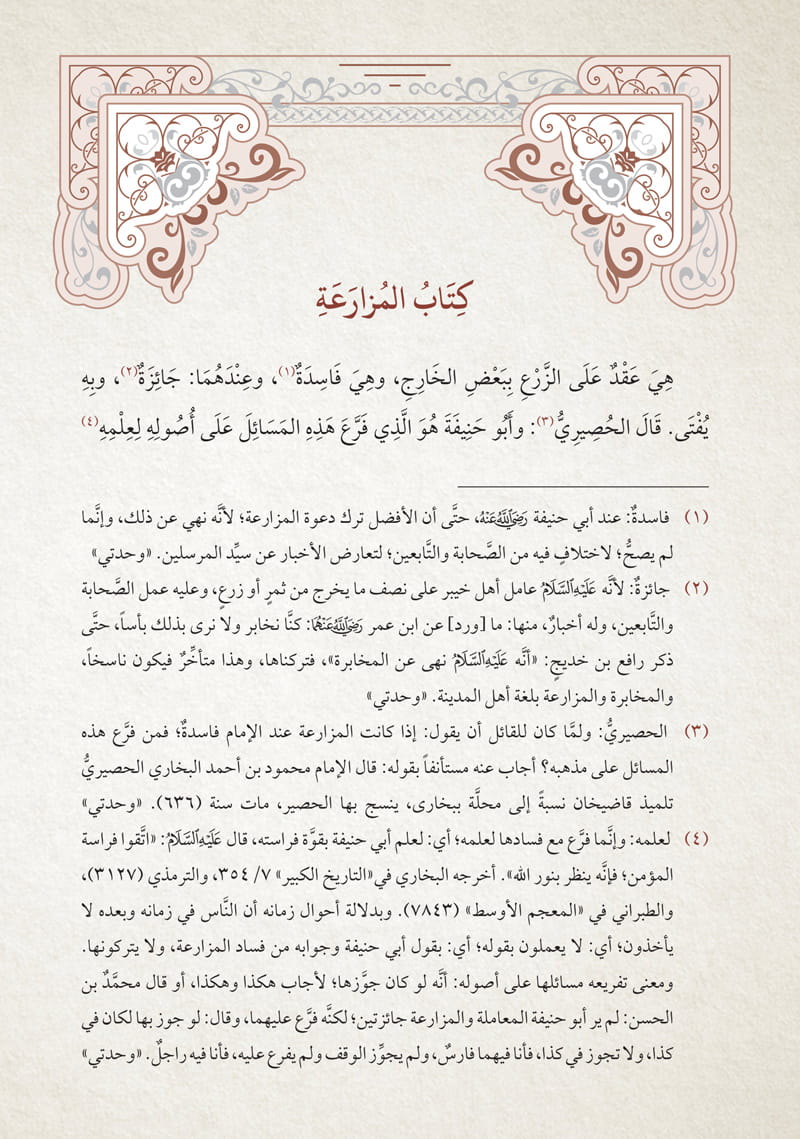 كِتَابُ المُزارَعَةِ
هِيَ عَقْدٌ عَلَى الزَّرْعِ بِبَعْضِ الخَارِجِ، وهِيَ فَاسِدَةٌ(١)، وعِنْدَهُمَا: جَائِزَةٌ(٢)، وبِهِ
يُفْتَى. قَالَ الحُصِيرِيُّ(٣): وأَبُو حَنِيفَةَ هُوَ الَّذِي فَرَّعَ هَذِهِ المَسَائِلَ عَلَى أُصُولِهِ لِعِلْمِهِ(٤)
(١) فاسدةٌ: عند أبي حنيفة رَضِيَ اللَّهُ عَنْهُ، حتَّى أن الأفضل ترك دعوة المزارعة؛ لأنَّه نهي عن ذلك، وإنَّما
لم يصحُّ؛ لاختلافٍ فيه من الصَّحابة والتَّابعين؛ لتعارض الأخبار عن سيِّد المرسلين. «وحدتي»
(٢) جائزةٌ: لأنَّه عَلَيْهِ السَّلَامُ عامل أهل خيبر على نصف ما يخرج من ثمرٍ أو زرعٍ، وعليه عمل الصَّحابة
والتَّابعين، وله أخبارٌ، منها: ما [ورد] عن ابن عمر رَضِيَ اللَّهُ عَنْهُمَا: كنَّا نخابر ولا نرى بذلك بأساً، حتَّى
ذكر رافع بن خديجٍ: «أنَّه عَلَيْهِ السَّلَامُ نهى عن المخابرة»، فتركناها، وهذا متأخِّرٌ فيكون ناسخاً،
والمخابرة والمزارعة بلغة أهل المدينة. «وحدتي»
(٣) الحصيريُّ: ولمَّا كان للقائل أن يقول: إذا كانت المزارعة عند الإمام فاسدةٌ؛ فمن فرَّع هذه
المسائل على مذهبه؟ أجاب عنه مستأنفاً بقوله: قال الإمام محمود بن أحمد البخاري الحصيريُّ
تلميذ قاضيخان نسبةً إلى محلَّة ببخارى، ينسج بها الحصير، مات سنة (٦٣٦). «وحدتي»
(٤) لعلمه: وإنَّما فرَّع مع فسادها لعلمه؛ أي: لعلم أبي حنيفة بقوَّة فراسته، قال عَلَيْهِ السَّلَامُ: «اتَّقوا فراسة
المؤمن؛ فإنَّه ينظر بنور الله». أخرجه البخاري في«التاريخ الكبير» ٧/ ٣٥٤، والترمذي (٣١٢٧)،
والطبراني في «المعجم الأوسط» (٧٨٤٣). وبدلالة أحوال زمانه أن النَّاس في زمانه وبعده لا
يأخذون؛ أي: لا يعملون بقوله؛ أي: بقول أبي حنيفة وجوابه من فساد المزارعة، ولا يتركونها.
ومعنى تفريعه مسائلها على أصوله: أنَّه لو كان جوَّزها؛ لأجاب هكذا وهكذا، أو قال محمَّدٌ بن
الحسن: لم ير أبو حنيفة المعاملة والمزارعة جائزتين؛ لكنَّه فرَّع عليهما، وقال: لو جوز بها لكان في
كذا، ولا تجوز في كذا، فأنا فيهما فارسٌ، ولم يجوِّز الوقف ولم يفرع عليه، فأنا فيه راجلٌ. «وحدتي»